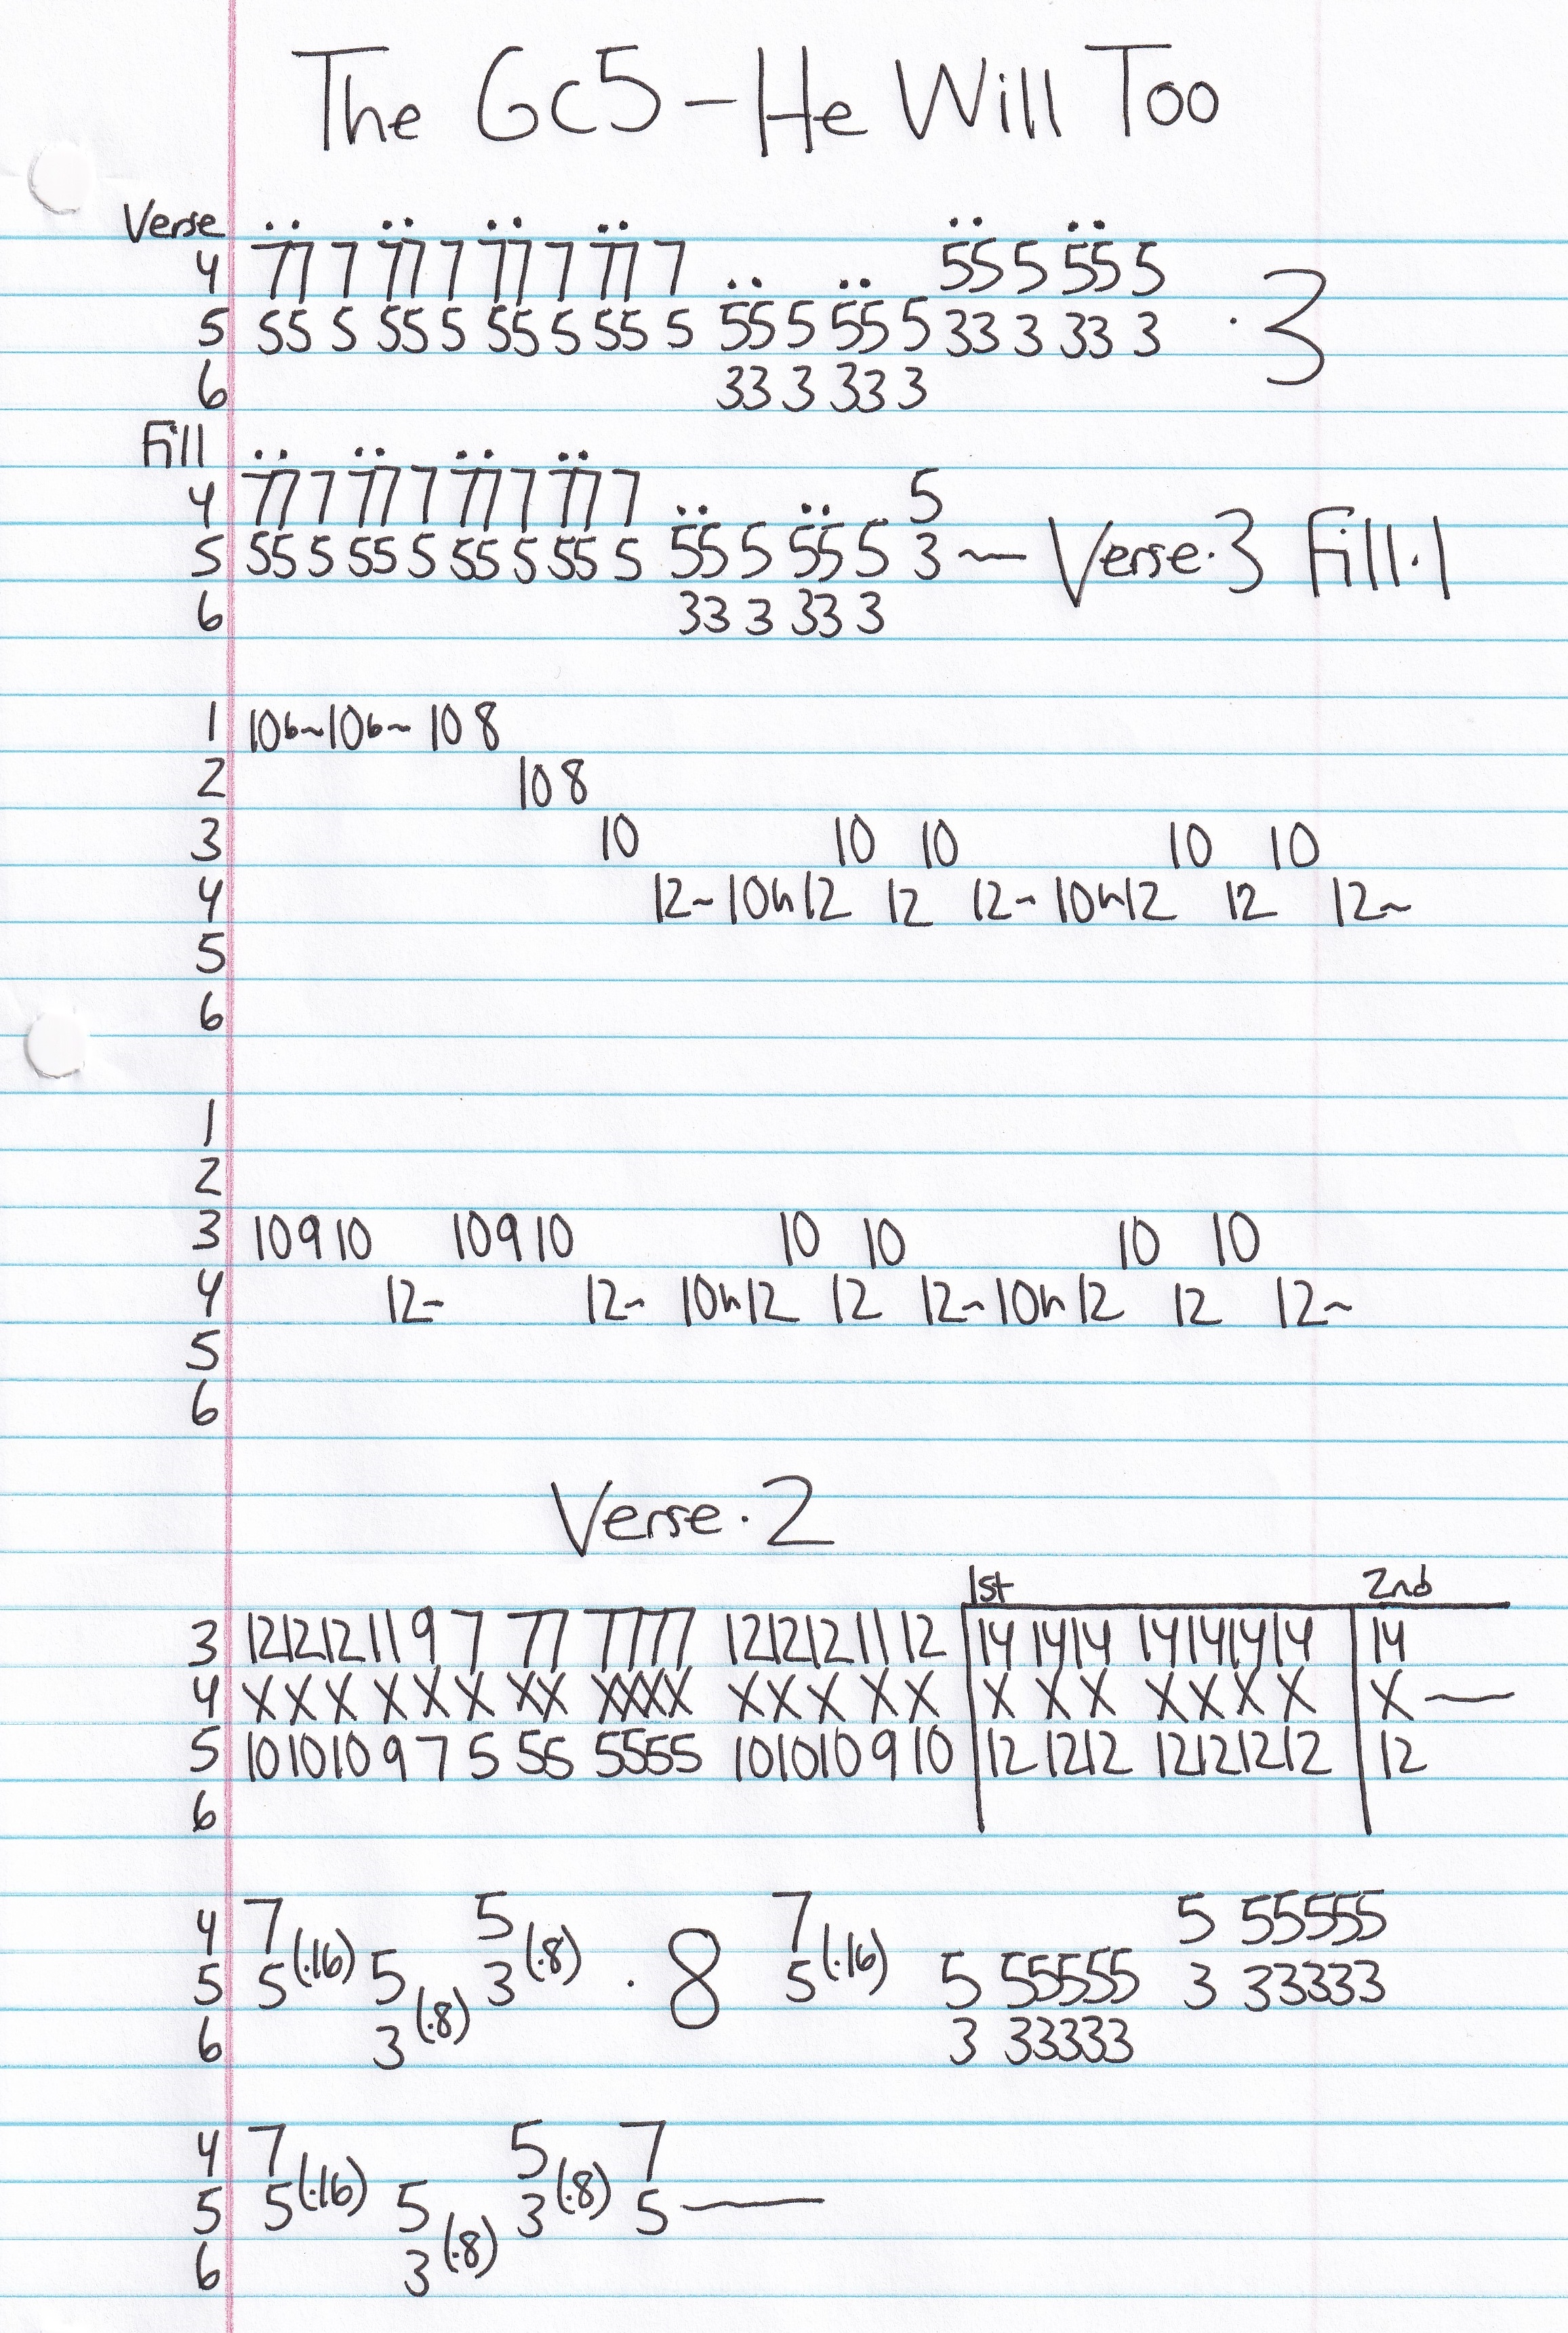 The Gc5 - He Will Too
Verse
4 77 7 77 7 77 7 77 7 55 5 55 5
5 55 5 55 5 55 5 55 5 55 5 55 5 33 3 33 3 · 3
6 33 3 33 3
Fill
4 77 7 77 7 77 7 77 7 5
5 55 5 55 5 55 5 55 5 55 5 55 5 3 ~ Verse · 3 Fill · 1
6 33 3 33 3
1 10b~10b~ 10 8
2 10 8
3 10 10 10 10 10
4 12~ 10h12 12 12~ 10h12 12 12~
5
6
1
2
3 10 9 10 10 9 10 10 10 10 10
4 12~ 12~ 10h12 12 12~ 10h12 12 12~
5
6
Verse · 2
1st 2nd
3 12 12 12 11 9 7 77 7777 12 12 12 11 12 14 14 14 14 14 14 14 14
4 X X X X X X XX XXXX X X X X X X X X X X X X X —
5 10 10 10 9 7 5 55 5555 10 10 10 9 10 12 12 12 12 12 12 12 12
6
4 7 5 7 5 55555
5 5 (·16) 5 3 (·8) · 8 5 (·16) 5 55555 3 33333
6 3 (·8) 3 33333
4 7 5 7
5 5 (·16) 5 3 (·8) 5 —
6 3 (·8)